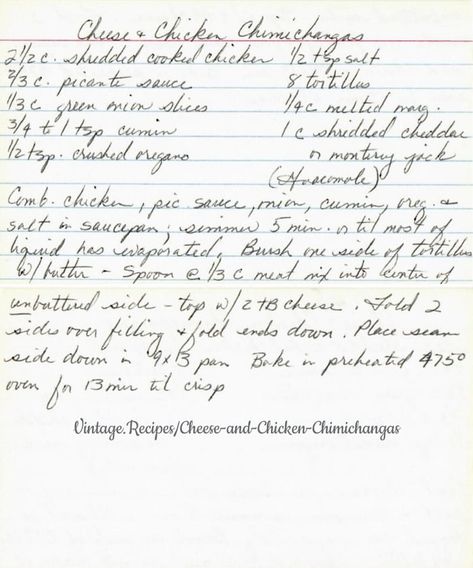 Cheese & Chicken Chimichangas
2 1/2 c. shredded cooked chicken 1/2 tsp salt
2/3 c. picante sauce 8 tortillas
1/3 c green onion slices 1/4 c melted marg.
3/4 to 1 tsp cumin 1 c shredded cheddar
1/2 tsp. crushed oregano or monterey jack
(Guacomole)
Comb. chicken, pic sauce, onion, cumin, oreg. &
salt in saucepan; simmer 5 min. or til most of
liquid has evaporated. Brush one side of tortillas
w/ butter - Spoon @ 1/3 c meat mix into center of
unbuttered side - top w/ 2 TB cheese. Fold 2
sides over filling & fold ends down. Place seam
side down in 9x3 pan Bake in preheated 475°
oven for 13 min til crisp
Vintage.Recipes/Cheese-and-Chicken-Chimichangas